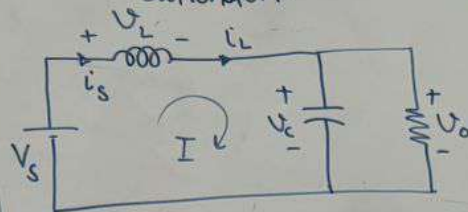 + V_L -
i_s
i_L
V_s
I
+ V_c -
+ V_o -